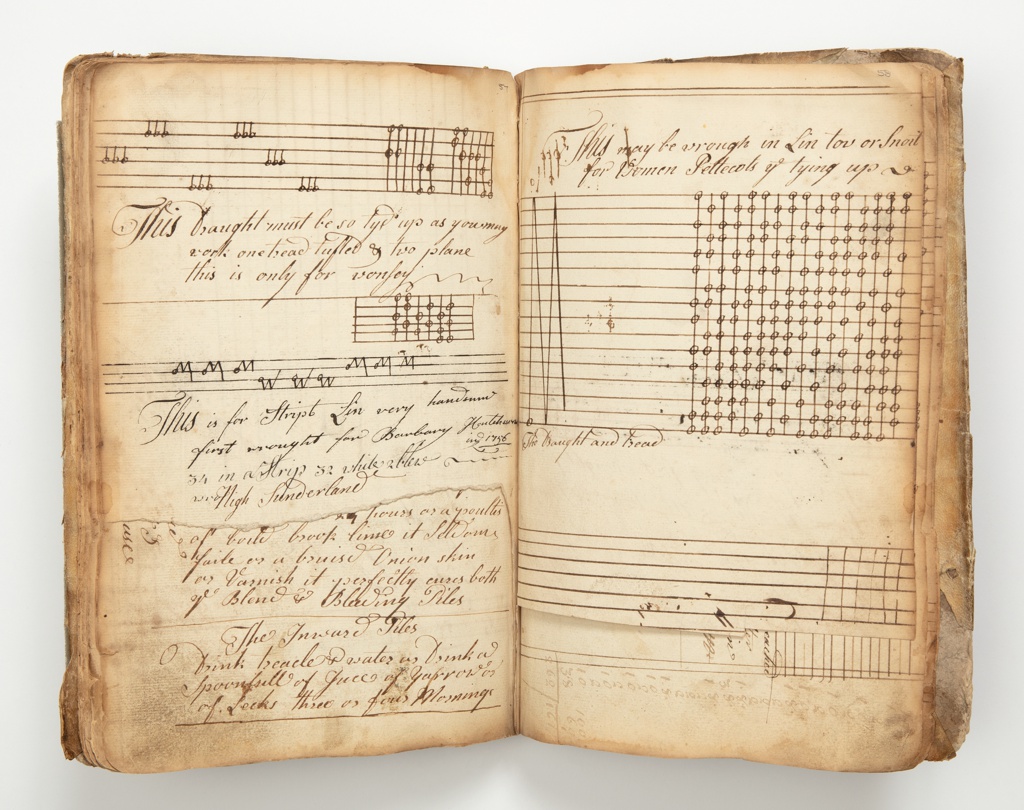 This Draught must be so tyd up as you may
work one tread tufted & two plane
this is only for wonsey
This is for Stript Lin very handsom
first wrought for Barbary
1786
34 in a Strip 32 white 2 blew
High Sunderland
hours or a poultis
of boild brook lime it Seldom
faile or a bruisd Onion skin
or Varnish it perfectly cures both
ye Blend & Bleading Piles
The Inward Piles
Drink treacle & water or Drink a
Spoonfull of Juce of Yarrow or
of Leeks three or four Mornings
This may be wrough in Lin tow or
for Women Pettecots ye tying up
The Draught and tread